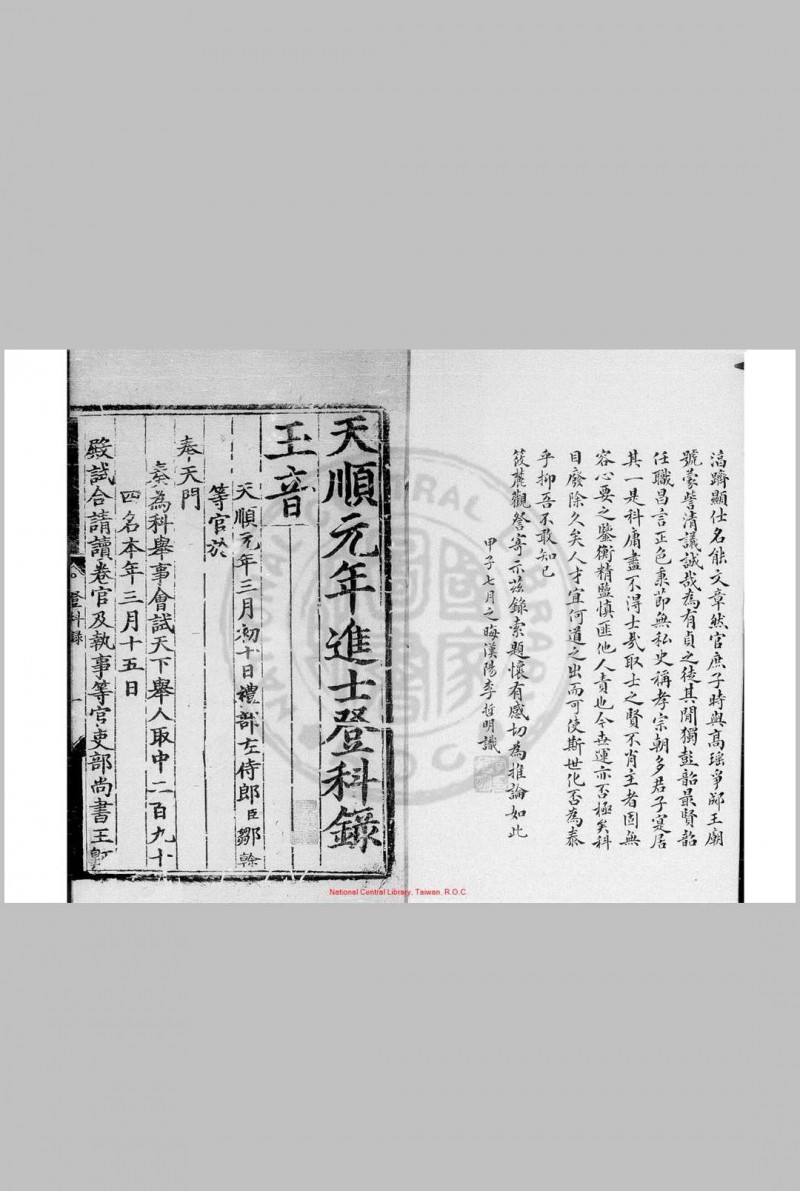 滈躋顯仕名能文章然官庶子時與高瑤爭郕王廟
號蒙訾清議誠哉為有貞之徒其閒獨彭韶最賢韶
任職昌言正色秉節無私史稱孝宗朝多君子寔居
其一是科庸盡不得士哉取士之賢不肖主者固無
容心要之鑒衡精監慎匪他人責也今世運亦否極矣科
目廢除久矣人才宜何道之出而可使斯世化否為泰
乎抑吾不敢知已
筱麓觀詧寄示茲錄索題懷有感切為推論如此
甲子七月之晦漢陽李哲明識
天順元年進士登科錄
玉音
天順元年三月初十日禮部左侍郎臣鄒幹
等官於
奉天門
奏為科舉事會試天下舉人取中二百九十
四名本年三月十五日
殿試合請讀卷官及執事等官吏部尚書王
登科錄
一
National Central Library, Taiwan, R.O.C.